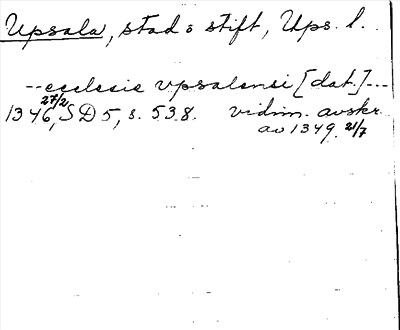 Upsala, stad o stift, Ups. l.
--ecclesie vpsalensi [dat.]---
1346 27/2, SD 5, s. 538. vidim. avskr.
av 1349 21/7